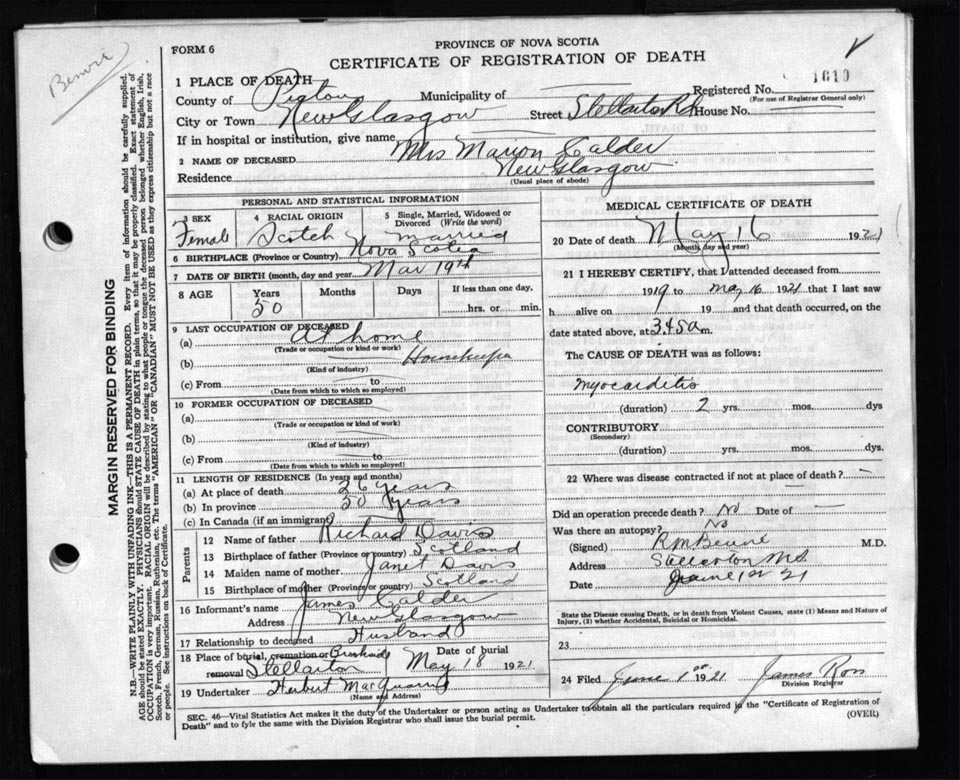 PROVINCE OF NOVA SCOTIA
FORM 6
CERTIFICATE OF REGISTRATION OF DEATH
1619
1 PLACE OF DEATH
County of Pictou Municipality of Registered No.
(For use of Registrar General only)
City or Town New Glasgow Street Stellarton Rd House No.
If in hospital or institution, give name
2 NAME OF DECEASED Mrs Marion Calder
Residence New Glasgow
(Usual place of abode)
PERSONAL AND STATISTICAL INFORMATION
3 SEX 4 RACIAL ORIGIN 5 Single, Married, Widowed or Divorced (Write the word)
Female Scotch Married
6 BIRTHPLACE (Province or Country) Nova Scotia
7 DATE OF BIRTH (month, day and year) Mar 19th
8 AGE Years Months Days If less than one day,
50 hrs. or min.
9 LAST OCCUPATION OF DECEASED
(a) At home
(Trade or occupation or kind or work)
(b) Housekeeper
(Kind of industry)
(c) From to
(Date from which to which so employed)
10 FORMER OCCUPATION OF DECEASED
(a)
(Trade or occupation or kind of work)
(b)
(Kind of industry)
(c) From to
(Date from which to which so employed)
11 LENGTH OF RESIDENCE (In years and months)
(a) At place of death 26 years
(b) In province 50 years
(c) In Canada (if an immigrant)
Parents
12 Name of father Richard Davis
13 Birthplace of father (Province or country) Scotland
14 Maiden name of mother Janet Davis
15 Birthplace of mother (Province or country) Scotland
16 Informant's name James Calder
Address New Glasgow
17 Relationship to deceased Husband
18 Place of burial, cremation or removal Stellarton Date of burial May 18 1921
19 Undertaker Herbert MacQuarrie
(Name and Address)
MEDICAL CERTIFICATE OF DEATH
20 Date of death May 16 1921
(Month, day and year)
21 I HEREBY CERTIFY, that I attended deceased from
1919 to May 16 1921 that I last saw
h alive on 19 and that death occurred, on the
date stated above, at 3.45 a m.
The CAUSE OF DEATH was as follows:
Myocarditis
(duration) 2 yrs. mos. dys
CONTRIBUTORY
(Secondary)
(duration) yrs. mos. dys.
22 Where was disease contracted if not at place of death?
Did an operation precede death? No Date of
Was there an autopsy? No
(Signed) M.D.
Address Stellarton N.S.
Date June 1st 21
State the Disease causing Death, or in death from Violent Causes, state (1) Means and Nature of
Injury, (2) whether Accidental, Suicidal or Homicidal.
23
24 Filed June 1 1921 James Ross
Division Registrar
SEC. 46—Vital Statistics Act makes it the duty of the Undertaker or person acting as Undertaker to obtain all the particulars required in the "Certificate of Registration of
Death" and to fyle the same with the Division Registrar who shall issue the burial permit.
(OVER)
MARGIN RESERVED FOR BINDING
N.B.—WRITE PLAINLY WITH UNFADING INK—THIS IS A PERMANENT RECORD. Every item of information should be carefully supplied.
AGE should be stated EXACTLY. PHYSICIANS should STATE CAUSE OF DEATH in plain terms, so that it may be properly classified. Exact statement of
OCCUPATION is very important. RACIAL ORIGIN will be described by stating to what people or tongue the deceased person belonged whether English, Irish,
Scotch, French, German, Russian, Ruthenian, etc. The terms "AMERICAN" OR "CANADIAN" MUST NOT BE USED as they express citizenship but not a race
or people. See instructions on back of Certificate.